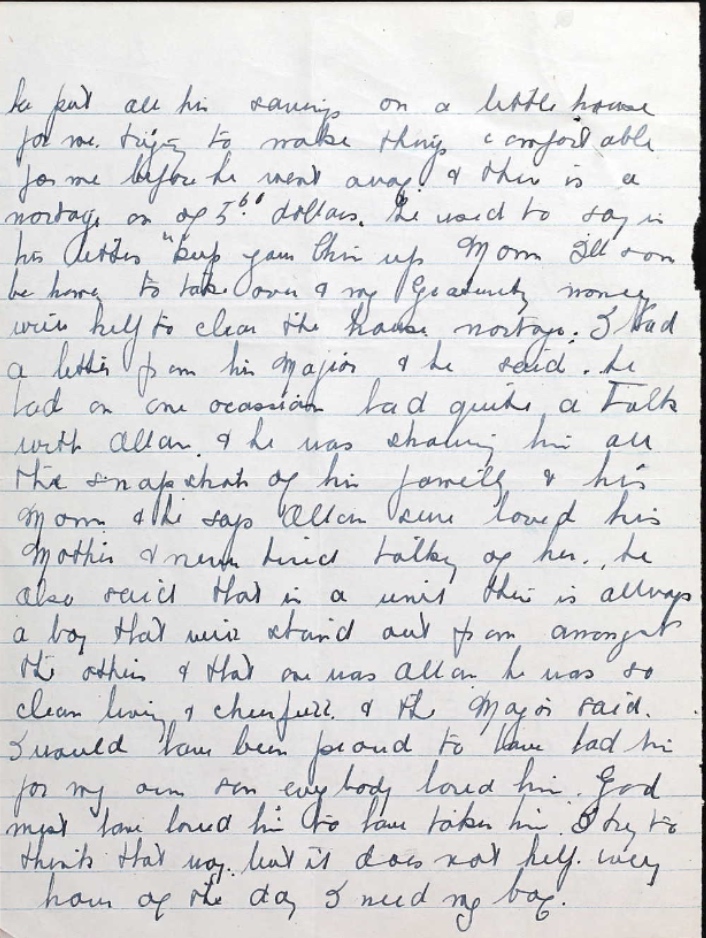 he put all his savings on a little house
for me. trying to make things comfortable
for me before he went away & there is a
mortage on of 5 dollars. he used to say in
his letters "keep your chin up Mom Ill soon
be home to take over & my Gratuity money
will help to clear the house mortage. I Had
a letter from his Major & he said. he
had on one ocassion had quite a Talk
with Allan. & he was showing him all
the snapshots of his family & his
Mom & he says Allan sure loved his
Mother & never tired talkg of her., he
also said that in a unit their is allways
a boy that will stand out from amongst
the others & that one was Allan he was so
clean living & cheerfull. & the Major said.
I would have been proud to have had him
for my own son everybody loved him. God
must have loved him to have taken him. I try to
think that way. but it does not help. every
hour of the day I need my boy.